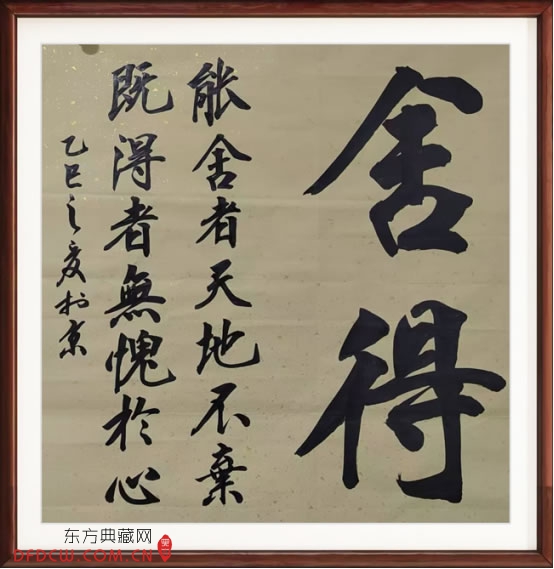 舍得
能舍者天地不棄
既得者無愧於心
乙巳之夏於京
东方典藏网
DFDCW.COM.CN